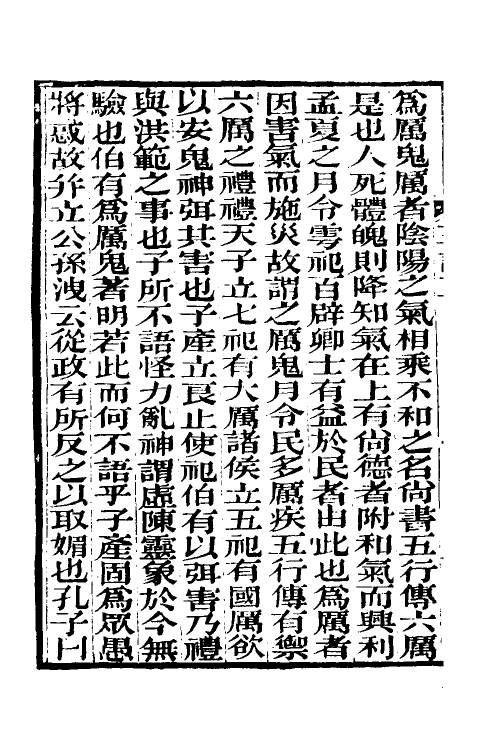 為厲鬼厲者陰陽之氣相乘不和之名尚書五行傳六厲
是也人死體魄則降知氣在上有尚德者附和氣而興利
孟夏之月令雩祀百辟卿士有益於民者由此也為厲者
因害氣而施災故謂之厲鬼月令民多厲疾五行傳有禦
六厲之禮禮天子立七祀有大厲諸侯立五祀有國厲欲
以安鬼神弭其害也子產立良止使祀伯有以弭害乃禮
與洪範之事也子所不語怪力亂神謂虛陳靈象於今無
驗也伯有為厲鬼著明若此而何不語乎子產固為眾愚
將惑故并立公孫洩云從政有所反之以取媚也孔子曰